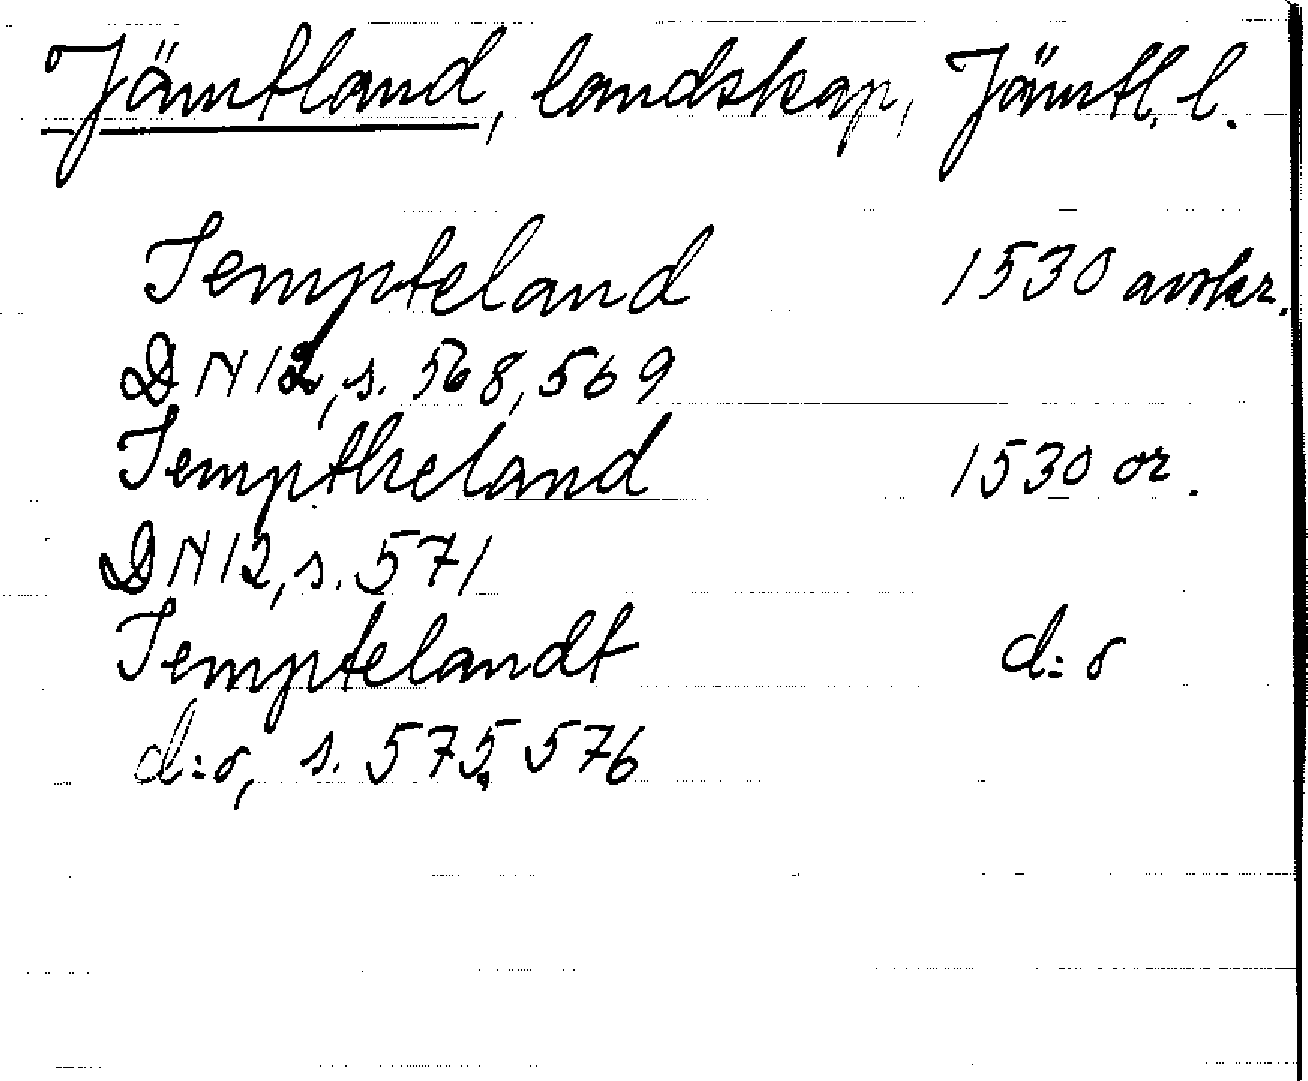 Jämtland, landskap, Jämtl. l.
Iempteland 1530 avskr.
DN 12, s. 568, 569
Iemptheland 1530 or.
DN 12, s. 571
Iemptelandt d:o
d:o, s. 575, 576